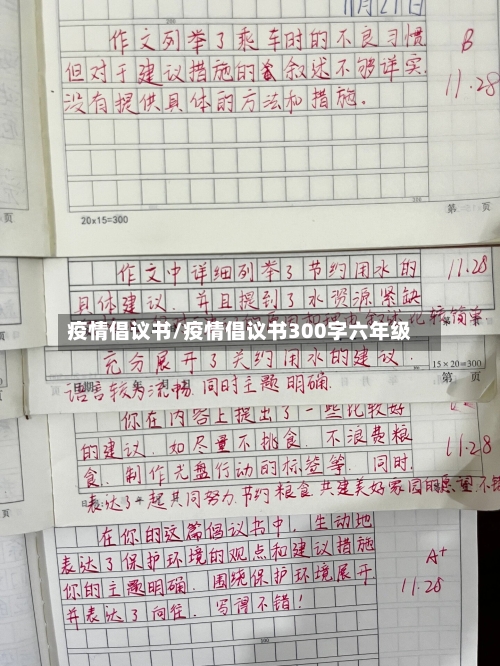 11月27日
作文列举了乘车时的不良习惯
但对于建议措施的叙述不够详实
没有提供具体的方法和措施。
B
11.28
20x15=300
第 页
页
作文中详细列举了节约用水的
11.28
具体建议,并且提到了水资源紧缺
较简单
疫情倡议书/疫情倡议书300字六年级
充分展开了关于节约用水的建议.
15×20=300
语言较为流畅.同时主题明确.
你在内容上提出了一些比较好
的建议.如尽量不挑食.不浪费粮
11.28
食.制作光盘行动的标签等.同时.
表达了一起共同努力.节约粮食.共建美好家园的愿望.不错
页
在你的这篇倡议书中,生动地
表达了保护环境的观点和建议措施
A+
你的主题明确.围绕保护环境展开
11.28
并表达了向往.写得不错!